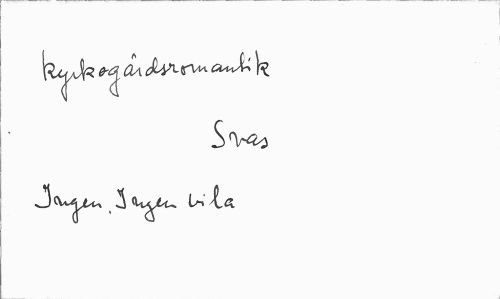 kyrkogårdsromantik
Svas
Ingen, Ingen vila